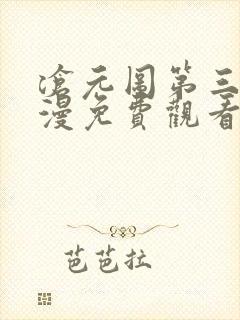 滄元圖第三
漫免費觀看
芭芭拉